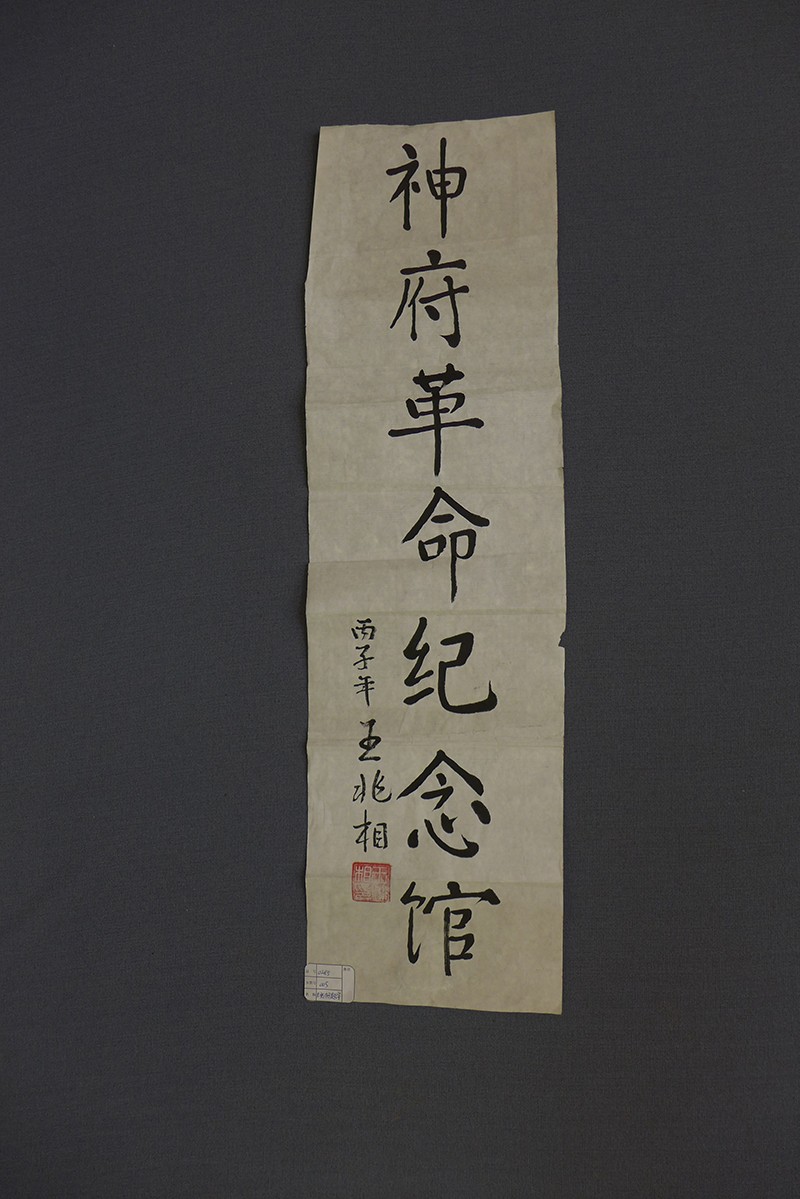 神府革命纪念馆
丙子年 王兆相